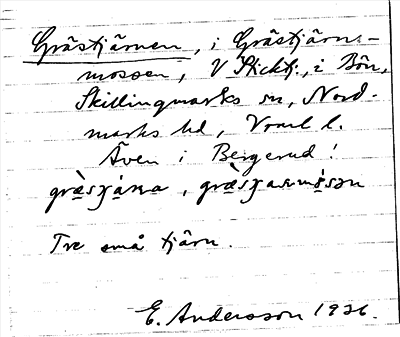 Grästjärnen, i Grästjärns-
mossen, V Sticktj., i Bön,
Skillingmarks sn, Nord-
marks hd, Vrml l.
Även i Bergerud!
græ̀sɲa̱ɴa, græ̀sɲaɴmɷ̀sən
Tre små tjärn.
E. Andersson 1936.